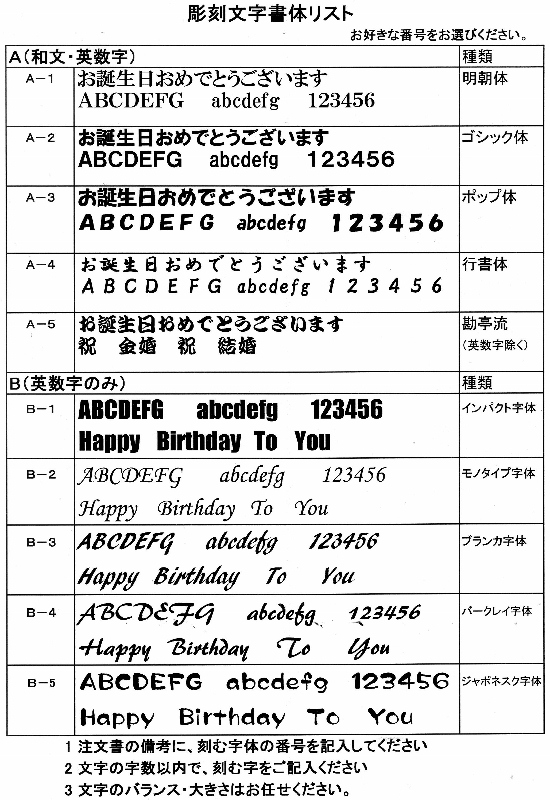 彫刻文字書体リスト
お好きな番号をお選びください。
A(和文・英数字) 種類
A-1 お誕生日おめでとうございます 明朝体
ABCDEFG abcdefg 123456
A-2 お誕生日おめでとうございます ゴシック体
ABCDEFG abcdefg 123456
A-3 お誕生日おめでとうございます ポップ体
ABCDEFG abcdefg 123456
A-4 お誕生日おめでとうございます 行書体
ABCDEFG abcdefg 123456
A-5 お誕生日おめでとうございます 勘亭流
祝 金婚 祝 結婚 (英数字除く)
B(英数字のみ) 種類
B-1 ABCDEFG abcdefg 123456 インパクト字体
Happy Birthday To You
B-2 ABCDEFG abcdefg 123456 モノタイプ字体
Happy Birthday To You
B-3 ABCDEFG abcdefg 123456 ブランカ字体
Happy Birthday To You
B-4 ABCDEFG abcdefg 123456 バークレイ字体
Happy Birthday To You
B-5 ABCDEFG abcdefg 123456 ジャポネスク字体
Happy Birthday To You
1 注文書の備考に、刻む字体の番号を記入してください
2 文字の字数以内で、刻む字をご記入ください
3 文字のバランス・大きさはお任せください。